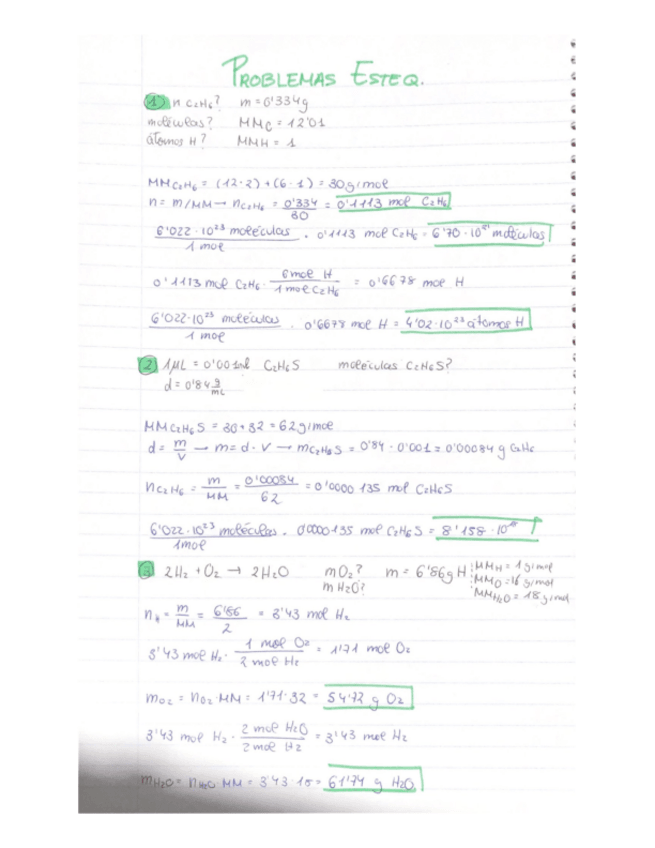 PROBLEMAS ESTEQ.
1) n C2H6? m = 0'334g
moléculas? MMC = 12'01
átomos H? MMH = 1
MM C2H6 = (12·2) + (6·1) = 30 g/mol
n = m/MM → n C2H6 = 0'334/30 = 0'1113 mol C2H6
6'022·10²³ moléculas / 1 mol · 0'1113 mol C2H6 = 6'70·10²¹ moléculas
0'1113 mol C2H6 · 6 mol H / 1 mol C2H6 = 0'6678 mol H
6'022·10²³ moléculas / 1 mol · 0'6678 mol H = 4'02·10²³ átomos H
2) 1µL = 0'001ml C2H6S moléculas C2H6S?
d = 0'84 g/mL
MM C2H6S = 30 + 32 = 62 g/mol
d = m/V → m = d·V → m C2H6S = 0'84 · 0'001 = 0'00084 g
n C2H6 = m/MM = 0'00084/62 = 0'0000135 mol C2H6S
6'022·10²³ moléculas / 1 mol · 0'0000135 mol C2H6S = 8'158·10
3) 2H2 + O2 → 2H2O m O2? m = 6'86g H MMH = 1 g/mol
m H2O? MMO = 16 g/mol
MMH2O = 18 g/mol
n = m/MM = 6'86/2 = 3'43 mol H2
3'43 mol H2 · 1 mol O2 / 2 mol H2 = 1'71 mol O2
m O2 = n O2 · MM = 1'71·32 = 54'72 g O2
3'43 mol H2 · 2 mol H2O / 2 mol H2 = 3'43 mol H2
m H2O = n H2O · MM = 3'43 · 18 = 61'74 g H2O